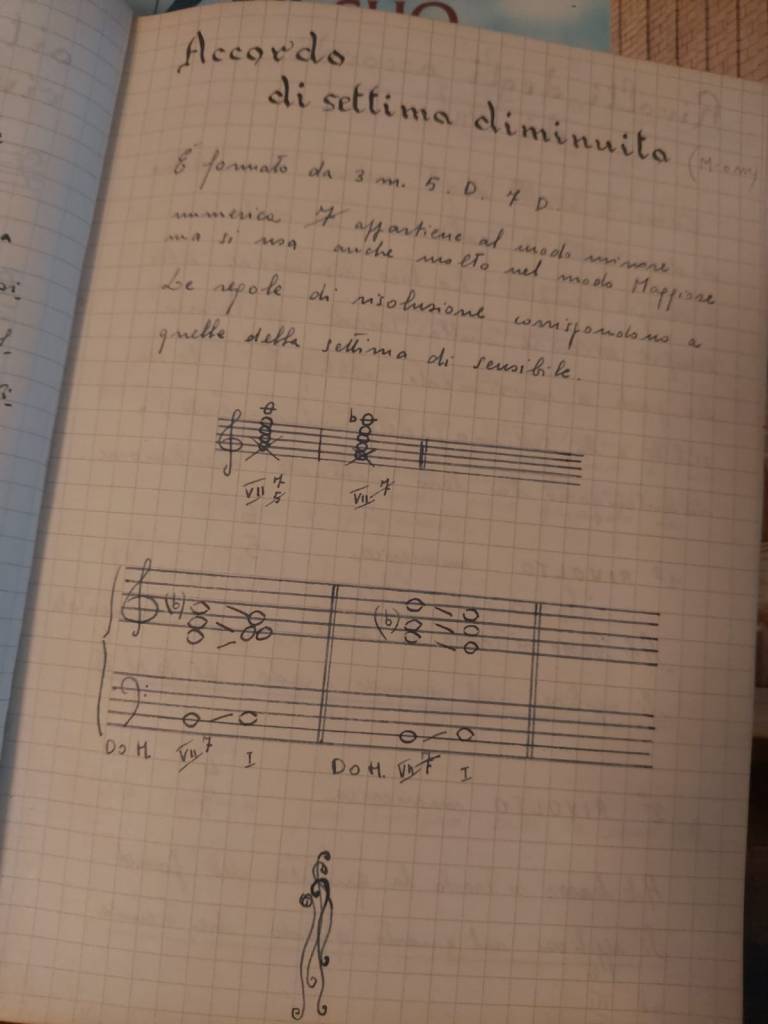 Accordo
di settima diminuita (M e m)
È formato da 3 m. 5. D. 7 D.
numerica 7 appartiene al modo minore
ma si usa anche molto nel modo Maggiore
Le regole di risoluzione corrispondono a
quelle della settima di sensibile.
VII 7 5 VII 7
Do M. VII 7 I Do M. VII 7 I